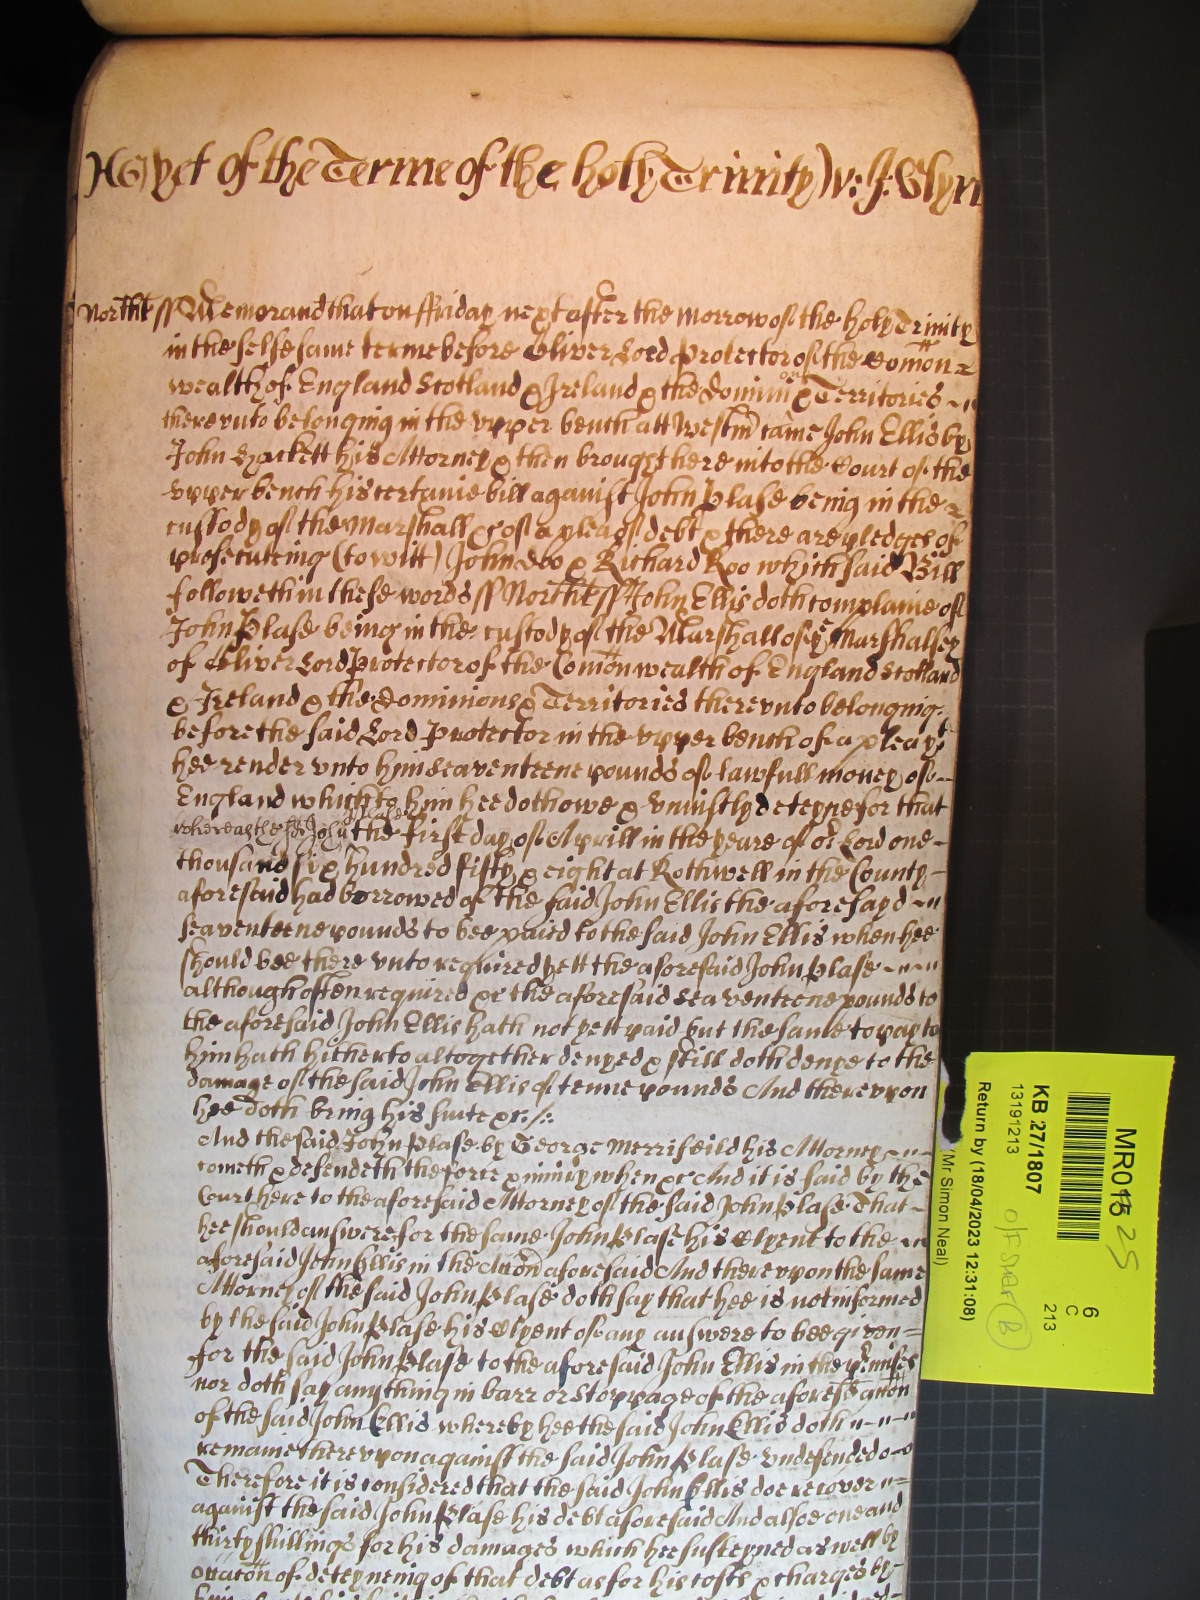 yet of the Terme of the holy Trinity
Northt ss Memorand that on ffriday next after the morrow of the holy Trinity
in the selfe same terme before Oliver Lord Protector of the Comon
wealth of England Scotland & Ireland & the Dominions & Territories
therevnto belonging in the vpper bench att Westm came John Ellis by
John Hackett his Attorney & then brought here into the Court of the
vpper bench his certaine bill against John Plase being in the
custody of the Marshall &c of a plea of debt & there are pledges of
prosecuteing (to witt) John Doo & Richard Roo which said Bill
followeth in these words ss Northt ss John Ellis doth complaine of
John Plase being in the custody of the Marshall of ye Marshalsey
of Oliver Lord Protector of the Comonwealth of England Scotland
& Ireland & the Dominions & Territories therevnto belonging
before the said Lord Protector in the vpper bench of a plea yt
hee render vnto him seaventeene pounds of lawfull money of
England which to him hee doth owe & vniustly deteyne for that
whereas the sd John Plase the first day of Aprill in the yeare of or Lord one
thousand six hundred fifty & eight at Rothwell in the County
aforesaid had borrowed of the said John Ellis the aforesayd
seaventeene pounds to bee paied to the said John Ellis when hee
should bee there vnto required yett the aforesaid John Plase
although often required &c the aforesaid seaventeene pounds to
the aforesaid John Ellis hath not yett paid but the same to pay to
him hath hitherto altogether denyed & still doth denye to the
damage of the said John Ellis of tenne pounds And therevpon
hee doth bring his suite &c
And the said John Plase by George Merrifeild his Attorney
cometh & defendeth the force & iniury when &c And it is said by the
Court here to the aforesaid Attorney of the said John Plase That
hee should answere for the same John Plase his Clyent to the
aforesaid John Ellis in the Accon aforesaid And therevpon the same
Attorney of the said John Plase doth say that hee is not informed
by the said John Plase his Clyent of any answere to bee given
for the said John Plase to the aforesaid John Ellis in the pmises
nor doth say anything in barr or stoppage of the aforesd accon
of the said John Ellis whereby hee the said John Ellis doth
remaine therevpon against the said John Plase vndefended
Therefore it is considered that the said John Ellis doe recover
against the said John Plase his debt aforesaid And alsoe one and
thirty shillings for his damages which hee susteyned as well by
occacon of deteyneing of that debt as for his costs & charges by
MR015
25
6
C
213
KB 27/1807
13191213
Return by (18/04/2023 12:31:08)
(Mr Simon Neal)